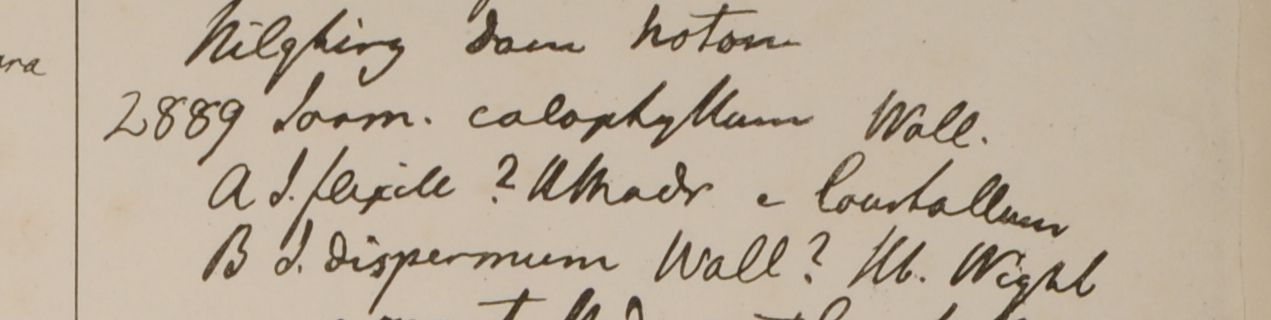 ara
Nilghiry Dom Noton
2889 Jasm. calophyllum Wall.
A J. flexile ? HMadr e Courtallum
B J. dispermum Wall? Hb. Wight